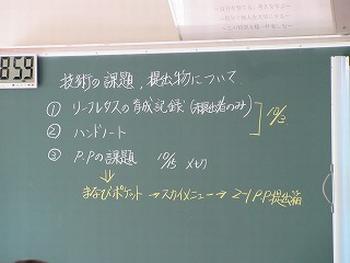 8:59
技術の課題，提出物について
① リーフレタスの育成記録（未提出者のみ）
② ハンドノート
10/3
③ P.Pの課題 10/15 〆切
⇓
まなびポケット→スカイメニュー→2-1 P.P提出箱